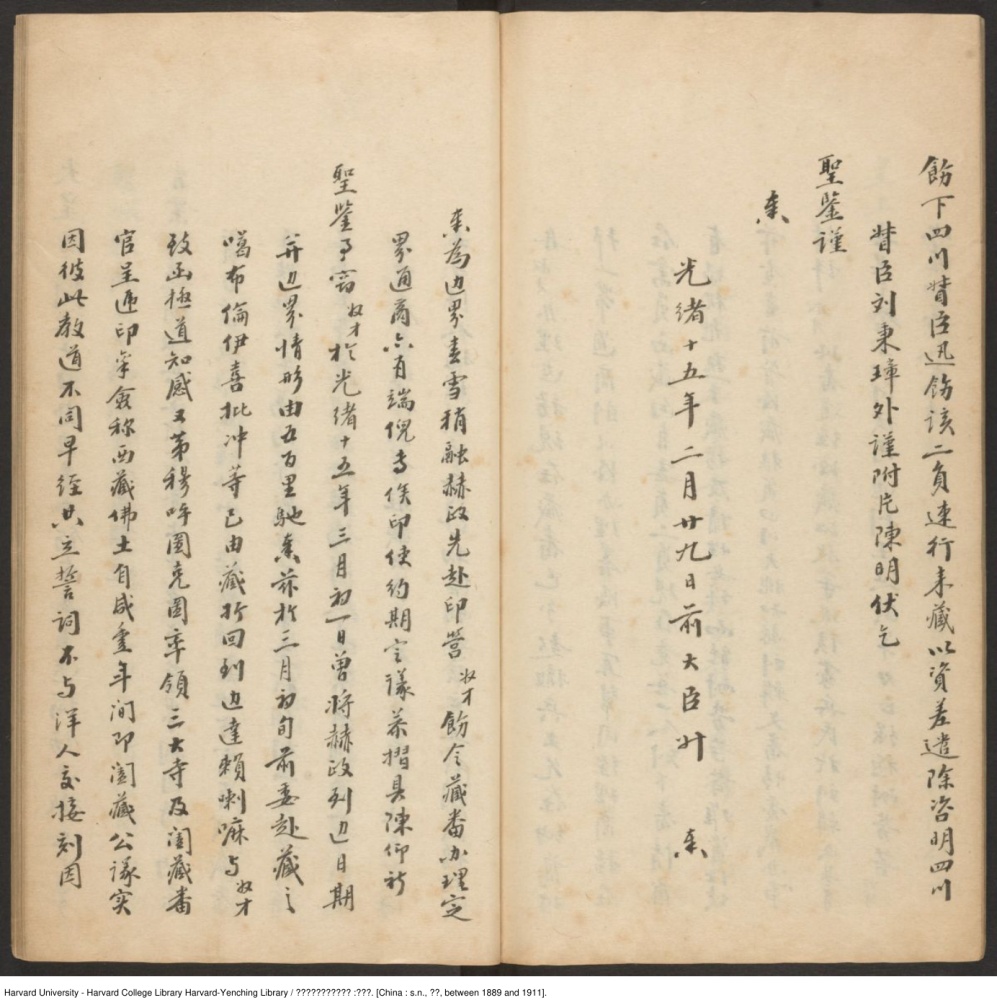 飭下四川督臣迅飭該二員速行来藏以資差遣除咨明四川
督臣刘秉璋外謹附片陳明伏乞
聖鉴謹
奏
光緒十五年二月廿九日前大臣升 奏
奏為边界春雪稍融赫政先赴印營奴才飭令藏番办理定
界通商亦有端倪专俟印使約期定議恭摺具陳仰祈
聖鉴事窃奴才於光緒十五年三月初一日曾将赫政到边日期
并边界情形由五百里馳奏兹於三月初旬前委赴藏之
噶布倫伊喜批冲等已由藏折回到边達賴喇嘛与奴才
致函極道知感又第穆呼圖克圖率領三大寺及闔藏番
官呈遞印禀僉称西藏佛土自咸豊年间即闔藏公議实
因彼此教道不同早経共立誓詞不与洋人交接刻因
Harvard University - Harvard College Library Harvard-Yenching Library / ??????????? :???. [China : s.n., ??, between 1889 and 1911].